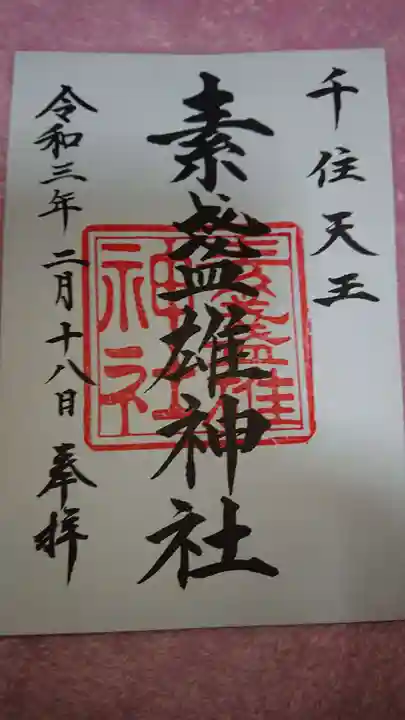 千住天王
素盞雄神社
令和三年二月十八日 奉拝
素盞雄
神社